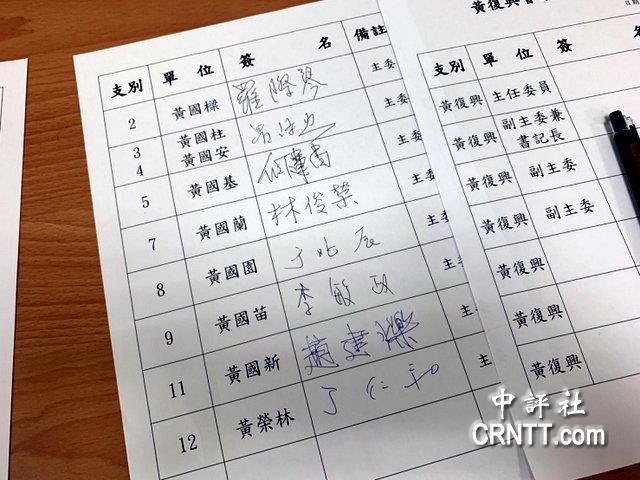 支別 單位 簽名 備註
2 黃國樑 羅際琴 主委
3 黃國柱 主委
4 黃國安 主委
5 黃國基 主委
7 黃國蘭 林俊榮 主委
8 黃國園 于北辰 主委
9 黃國苗 李敏政 主委
11 黃國新 主
12 黃榮林 丁仁和 主
黃復興
支別 單位 簽
黃復興 主任委員
黃復興 副主委兼
書記長
黃復興 副主委
黃復興 副主委
黃復興
黃復興
中評社
CRNTT.com